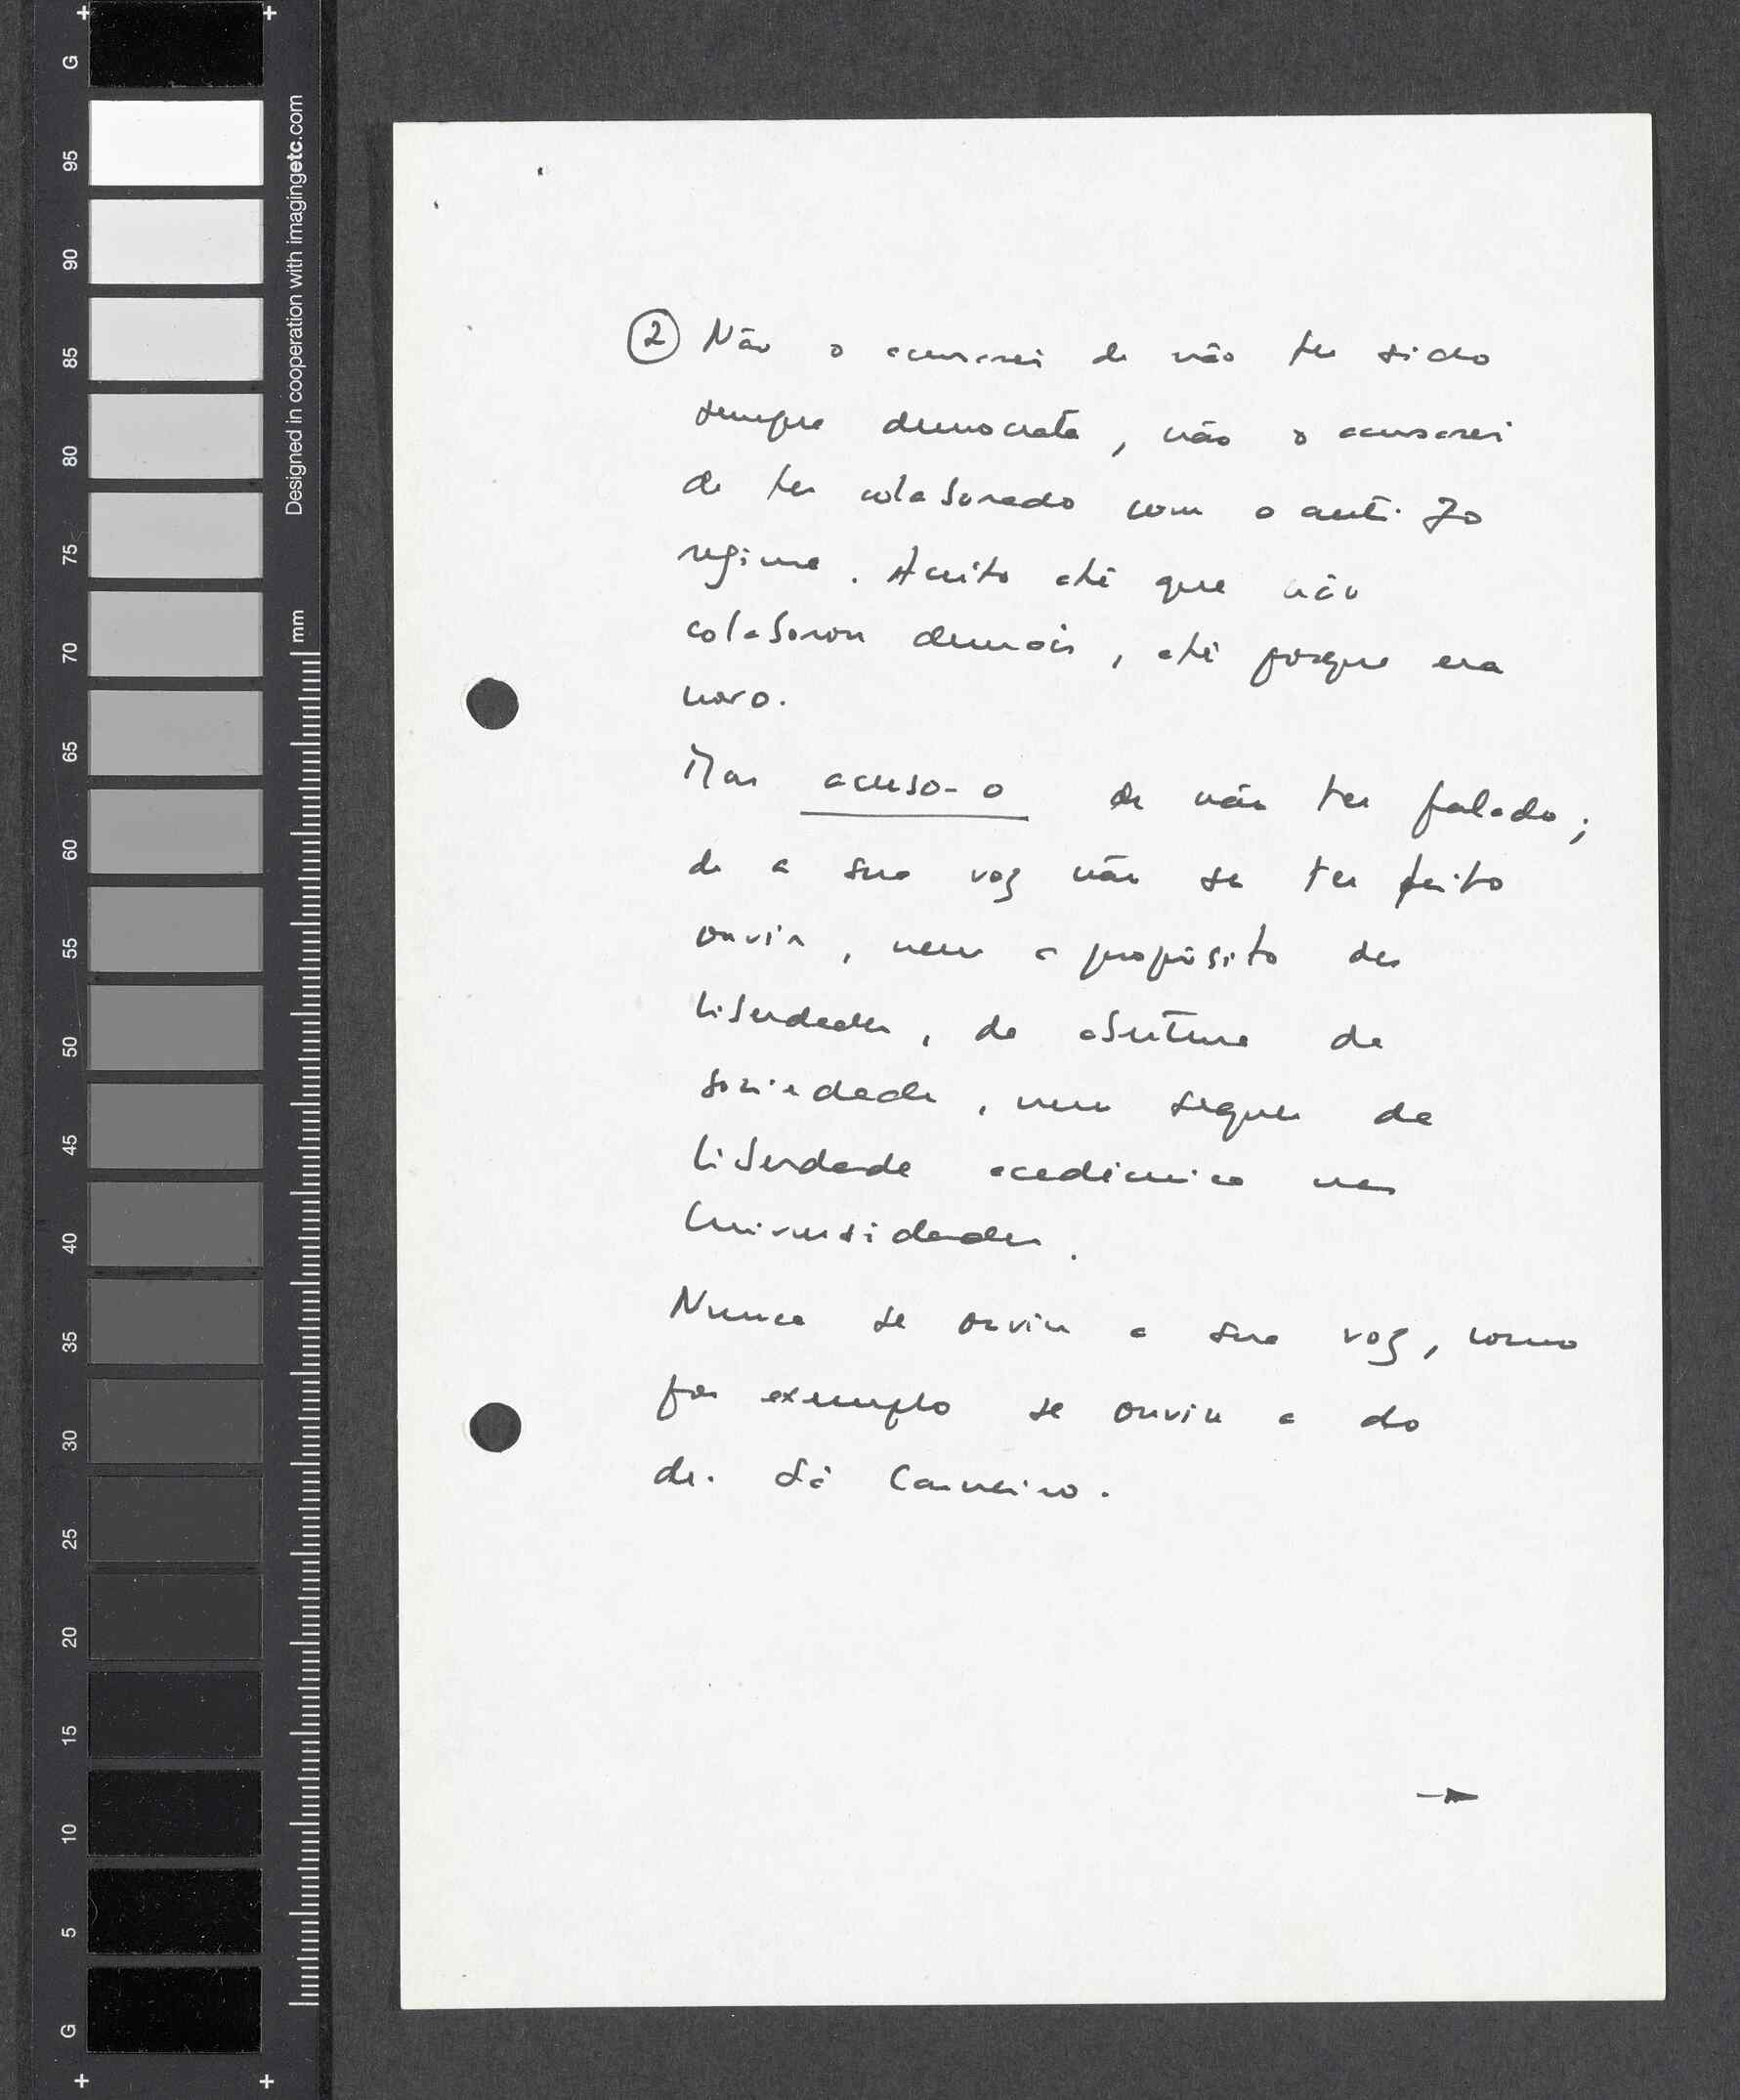 G
95
90
85
80
75
70
65
60
55
50
45
40
35
30
25
20
15
10
5
G
Designed in cooperation with imagingetc.com
mm
2 Não o acusarei de não ter sido
sempre democrata, não o acusarei
de ter colaborado com o antigo
regime. Aceito até que não
colaborou demais, até porque era
novo.
Mas acuso-o de não ter falado;
de a sua voz não se ter feito
ouvir, nem a propósito das
liberdades, da abertura da
sociedade, nem sequer da
liberdade académica nas
Universidades.
Nunca se ouviu a sua voz, como
por exemplo se ouviu a do
dr. Sá Carneiro.
→